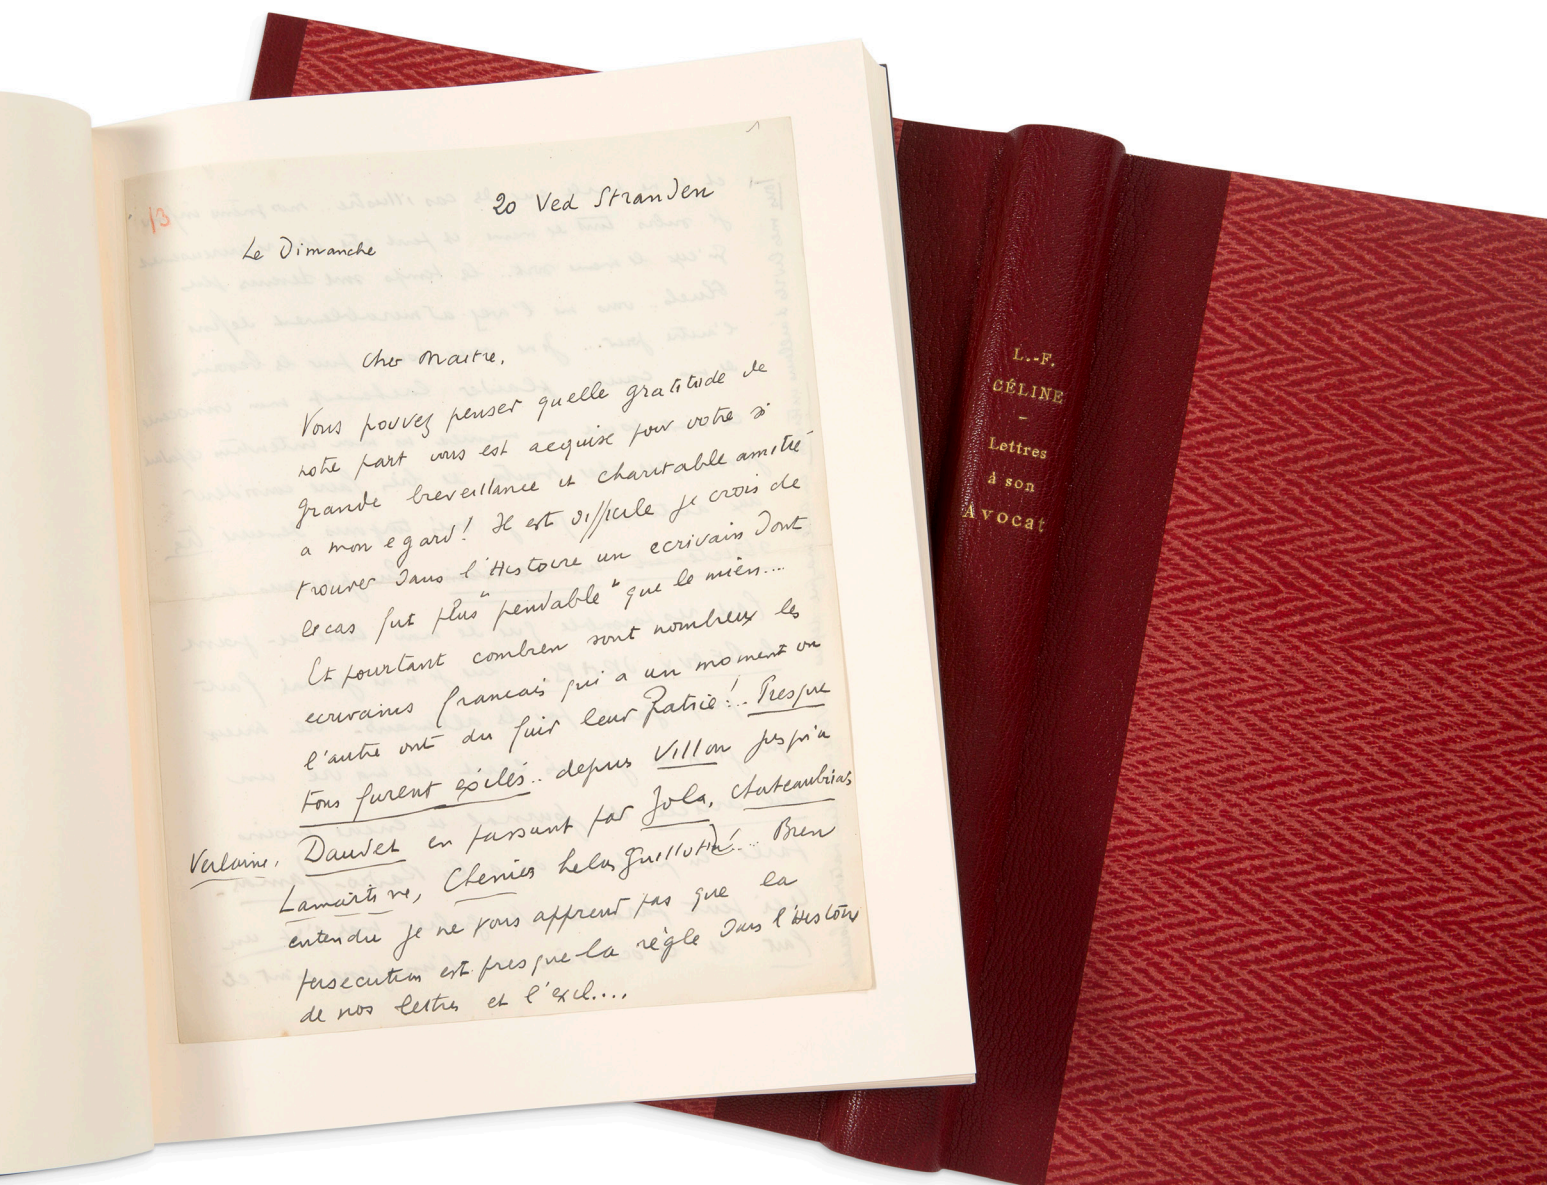 1
13
20 Ved Stranden
Le Dimanche
Cher Maitre,
Vous pouvez penser quelle gratitude de
notre part vous est acquise pour votre si
grande bienveillance et charitable amitié
a mon egard! Il est difficile je crois de
trouver dans l'Histoire un ecrivain dont
le cas fut plus "pendable" que le mien...
Et pourtant combien sont nombreux les
ecrivains francais qui a un moment ou
l'autre ont du fuir leur Patrie!.. Presque
tous furent exilés.. depuis Villon jusqu'a
Verlaine, Daudet en passant par Zola, Chateaubriand
Lamartine, Chenier helas guillotiné!... Bien
entendu je ne vous apprend pas que la
persecution est presque la règle dans l'Histoire
de nos lettres et l'exil....
L.-F.
CÉLINE
-
Lettres
à son
Avocat